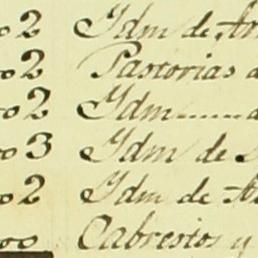 o2 Ydm de An
o2 Pastorias d
o2 Ydm........d
o3 Ydm de
o2 Ydm de A
oo Cabrestos y